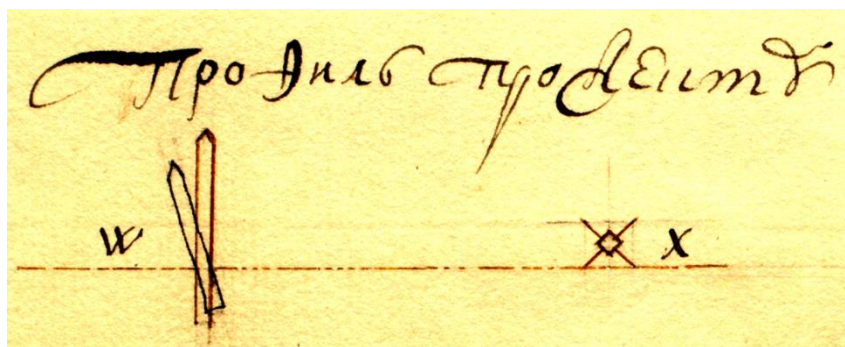 Профиль проекту
w x